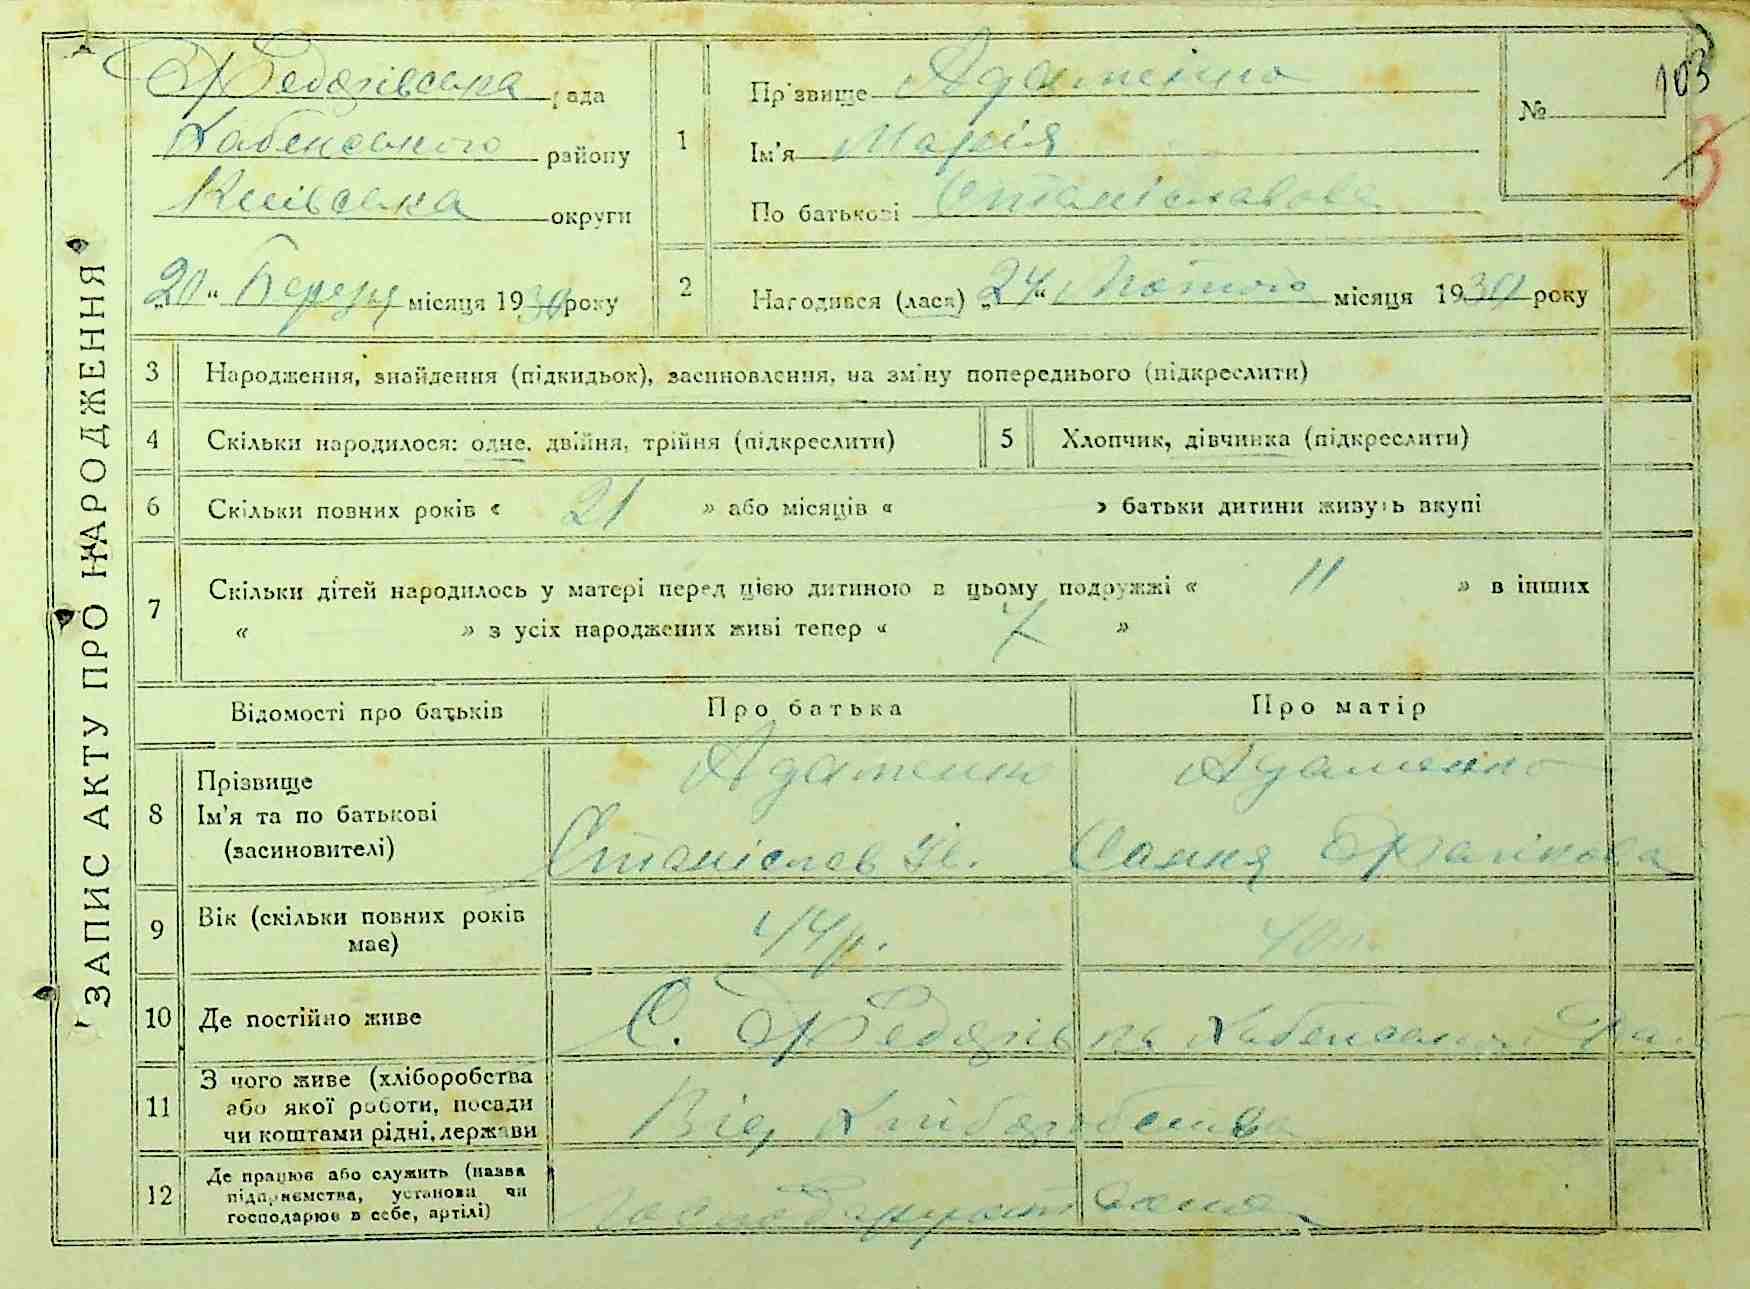 ЗАПИС АКТУ ПРО НАРОДЖЕННЯ
Федорівська рада
Хабенського району
Київська округи
„20“ Березня місяця 1930 року
1
Прізвище Адаменко
Ім'я Марія
По батькові Станіславова
№
103
3
2
Народився (лася) „24“ Лютого місяця 1930 року
3 Народження, знайдення (підкидьок), засиновлення, на зміну попереднього (підкреслити)
4 Скільки народилося: одне, двійня, трійня (підкреслити)
5 Хлопчик, дівчинка (підкреслити)
6 Скільки повних років « 21 » або місяців « » батьки дитини живуть вкупі
7 Скільки дітей народилось у матері перед цією дитиною в цьому подружжі « 11 » в інших
« » з усіх народжених живі тепер « 7 »
Відомості про батьків Про батька Про матір
8 Прізвище
Ім'я та по батькові
(засиновителі)
Адаменко Адаменко
Станіслав
9 Вік (скільки повних років має)
44 р. 40 р.
10 Де постійно живе
С. Федорівка Хабенського
11 З чого живе (хліборобства
або якої роботи, посади
чи коштами рідні, держави
Від Хліборобства
12 Де працює або служить (назва
підприємства, установи чи
господарює в себе, артілі)